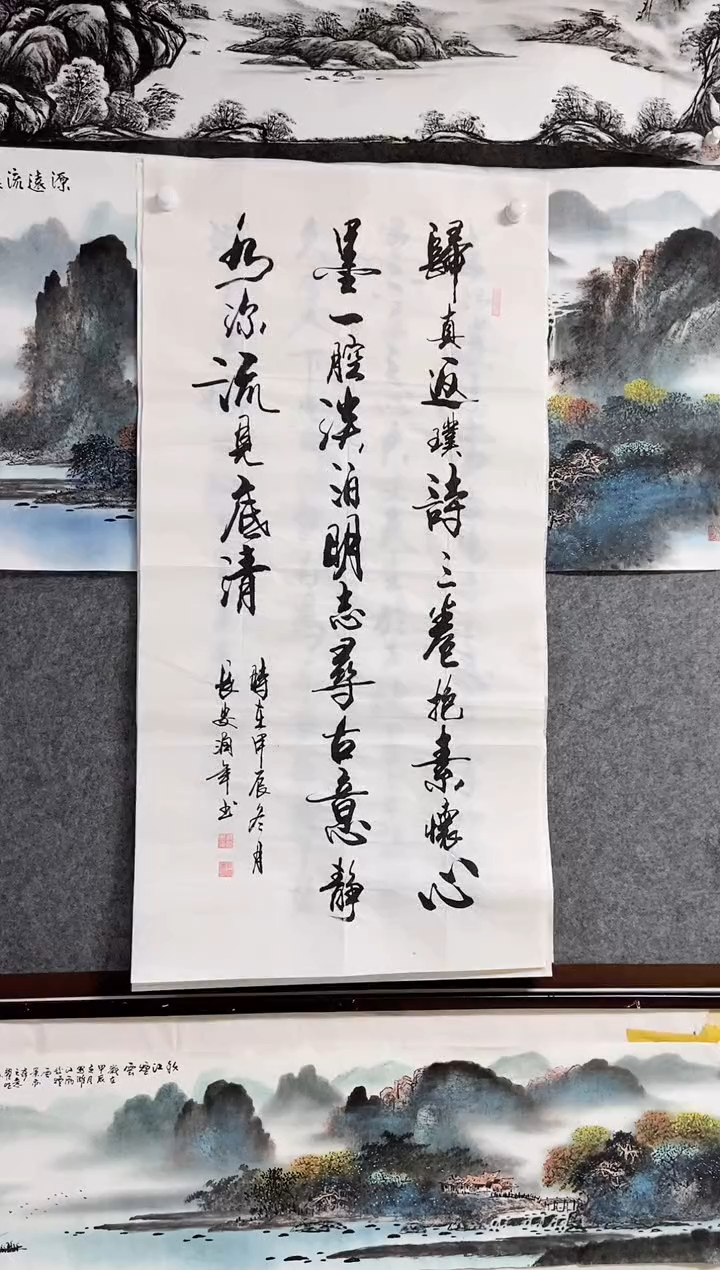 歸真返璞詩三卷抱素懷心
墨一腔淡泊明志尋古意靜
水深流見底清
時在甲辰冬月
長安潤年书
源遠流
秋江煙雲